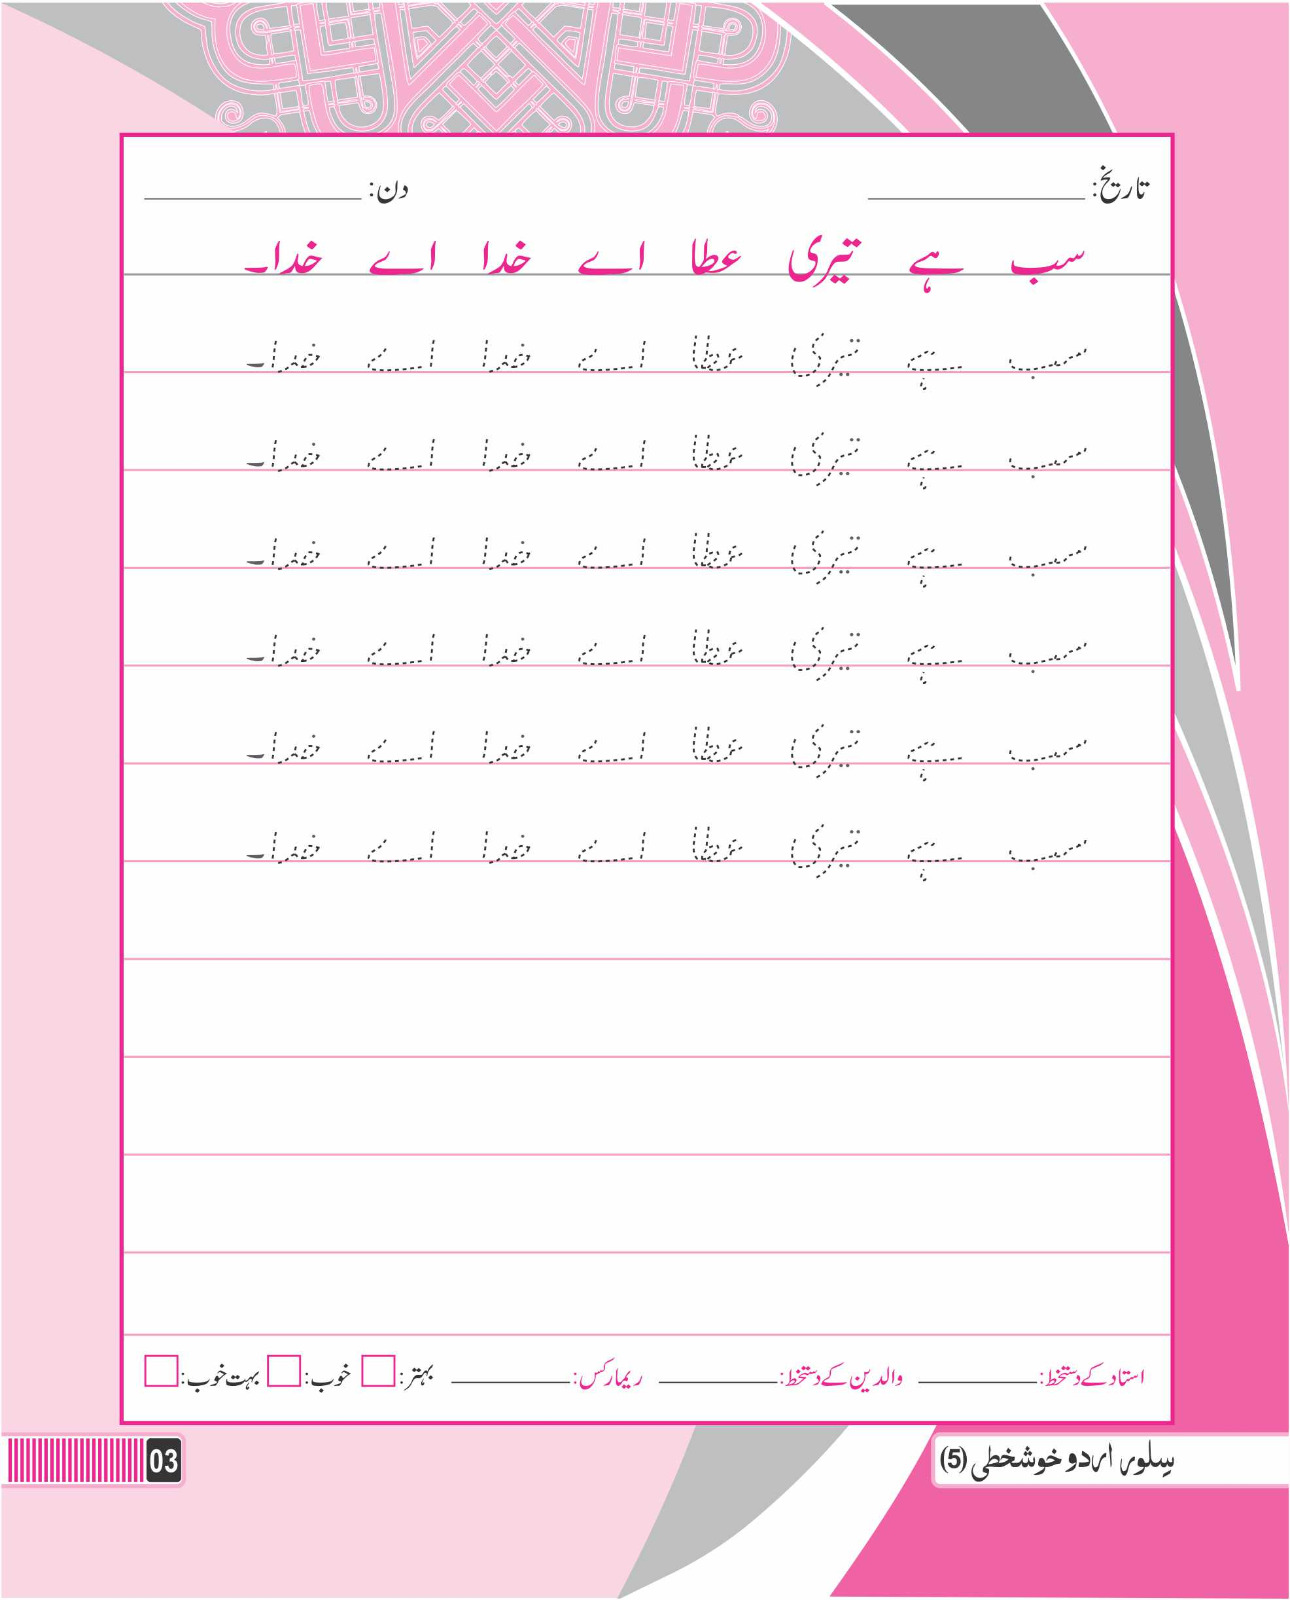 تاریخ: ____________ دن: ____________
سب ہے تیری عطا اے خدا اے خدا۔
سب ہے تیری عطا اے خدا اے خدا۔
سب ہے تیری عطا اے خدا اے خدا۔
سب ہے تیری عطا اے خدا اے خدا۔
سب ہے تیری عطا اے خدا اے خدا۔
سب ہے تیری عطا اے خدا اے خدا۔
سب ہے تیری عطا اے خدا اے خدا۔
استاد کے دستخط: ________ والدین کے دستخط: ________ ریمارکس: ________ بہتر: خوب: بہت خوب:
سِلور اردو خوشخطی (5)
03